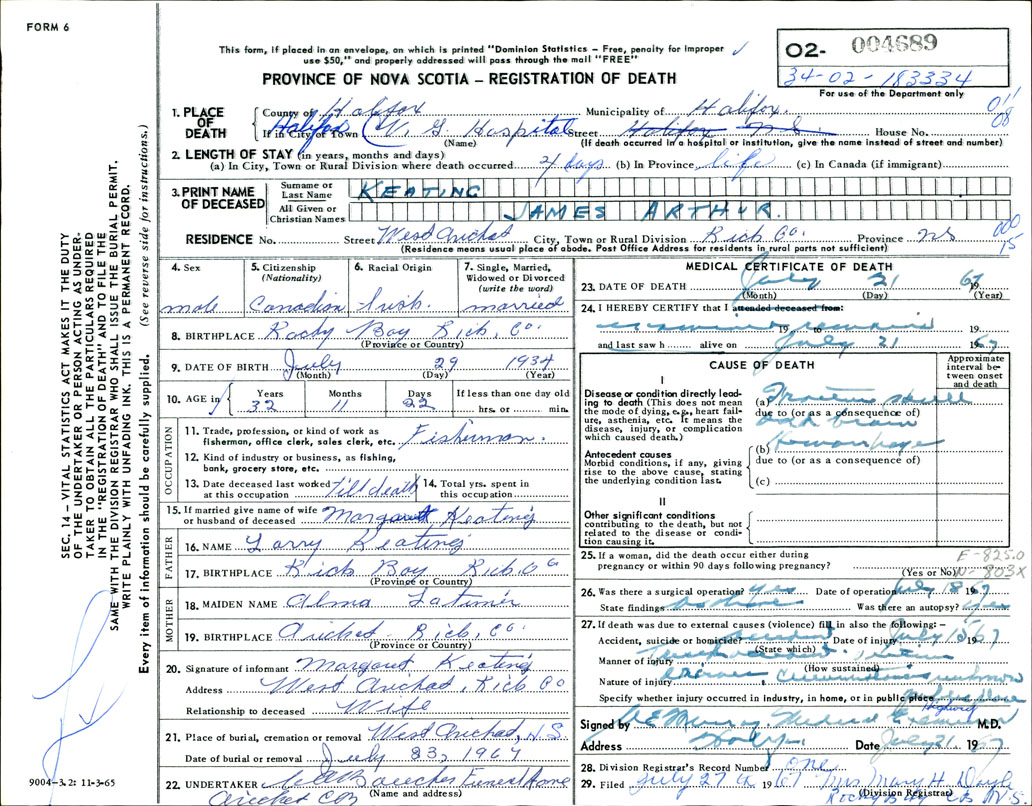 FORM 6
This form, if placed in an envelope, on which is printed "Dominion Statistics – Free, penalty for improper
use $50," and properly addressed will pass through the mail "FREE"
PROVINCE OF NOVA SCOTIA – REGISTRATION OF DEATH
02- 004689
34-02-183334
For use of the Department only
011
08
1. PLACE OF DEATH
County of Halifax Municipality of Halifax.
If in City or Town Halifax (V. G. Hospital Street Halifax N.S. House No.
(Name) (If death occurred in a hospital or institution, give the name instead of street and number)
2. LENGTH OF STAY (in years, months and days)
(a) In City, Town or Rural Division where death occurred 4 days (b) In Province life (c) In Canada (if immigrant)
3. PRINT NAME OF DECEASED
Surname or Last Name KEATING
All Given or Christian Names JAMES ARTHUR.
RESIDENCE No. Street West Arichat City, Town or Rural Division Rich Co. Province NS
000
15
(Residence means usual place of abode. Post Office Address for residents in rural parts not sufficient)
4. Sex male
5. Citizenship (Nationality) Canadian
6. Racial Origin Irish.
7. Single, Married, Widowed or Divorced (write the word) married
8. BIRTHPLACE Rocky Bay Rich, Co.
(Province or Country)
9. DATE OF BIRTH July 29 1934
(Month) (Day) (Year)
10. AGE in Years 32 Months 11 Days 22 If less than one day old hrs. or min.
OCCUPATION
11. Trade, profession, or kind of work as fisherman, office clerk, sales clerk, etc. Fisherman.
12. Kind of industry or business, as fishing, bank, grocery store, etc.
13. Date deceased last worked at this occupation Till death
14. Total yrs. spent in this occupation
15. If married give name of wife or husband of deceased Margaret Keating
FATHER
16. NAME Larry Keating
17. BIRTHPLACE Rich Bay Rich. Co
(Province or Country)
MOTHER
18. MAIDEN NAME Alma Latimer
19. BIRTHPLACE Arichat Rich, Co.
(Province or Country)
20. Signature of informant Margaret Keating
Address West Arichat, Rich Co
Relationship to deceased Wife
21. Place of burial, cremation or removal West Arichat, N.S.
Date of burial or removal July 23, 1967
22. UNDERTAKER Boucher Funeral Home
Arichat
(Name and address)
MEDICAL CERTIFICATE OF DEATH
23. DATE OF DEATH July 21 1967
(Month) (Day) (Year)
24. I HEREBY CERTIFY that I attended deceased from:
examined 19 to remains 19
and last saw h alive on July 21 1967
CAUSE OF DEATH
Approximate interval between onset and death
I
Disease or condition directly leading to death (This does not mean the mode of dying, e.g., heart failure, asthenia, etc. It means the disease, injury, or complication which caused death.)
(a) Fracture skull
due to (or as a consequence of)
and brain
(b) Hemorrhage
due to (or as a consequence of)
(c)
Antecedent causes
Morbid conditions, if any, giving rise to the above cause, stating the underlying condition last.
II
Other significant conditions contributing to the death, but not related to the disease or condition causing it.
25. If a woman, did the death occur either during pregnancy or within 90 days following pregnancy?
(Yes or No)
E-825.0
N-803X
26. Was there a surgical operation? yes Date of operation July 18 1967
State findings as above Was there an autopsy? yes
27. If death was due to external causes (violence) fill in also the following:–
Accident, suicide or homicide? accident Date of injury July 18 1967
(State which)
Manner of injury
(How sustained)
Nature of injury circumstances unknown
Specify whether injury occurred in industry, in home, or in public place
Highway
Signed by Murray Medical Examiner M.D.
Address Date July 21 1967
28. Division Registrar's Record Number one
29. Filed July 27th 1967 Mrs Mary H. Doyle
(Division Registrar)
N.S.
SEC. 14 – VITAL STATISTICS ACT MAKES IT THE DUTY
OF THE UNDERTAKER OR PERSON ACTING AS UNDER-
TAKER TO OBTAIN ALL THE PARTICULARS REQUIRED
IN THE "REGISTRATION OF DEATH" AND TO FILE THE
SAME WITH THE DIVISION REGISTRAR WHO SHALL ISSUE THE BURIAL PERMIT.
WRITE PLAINLY WITH UNFADING INK. THIS IS A PERMANENT RECORD.
Every item of information should be carefully supplied. (See reverse side for instructions.)
9004-3.2: 11-3-65